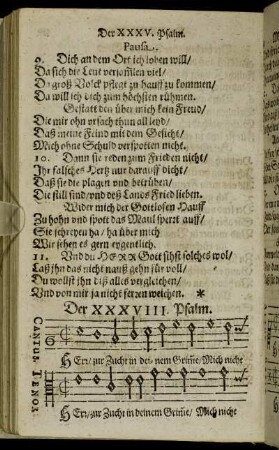 Der XXXV. Psalm.
Pausa.
9. Dich an dem Ort ich loben will/
Da sich die Leut versamlen viel/
Da groß Volck pflegt zu hauff zu kommen/
Da will ich dich zum höchsten rühmen.
Gestatt den über mich kein Freud/
Die mir ohn ursach thun all leyd/
Daß meine Feind mit dem Gesicht/
Mich ohne Schuld verspotten nicht.
10. Dann sie reden zum Frieden nicht/
Ihr falsches Hertz nur darauff dicht/
Daß sie die plagen und betrüben/
Die still sind/und deß Lands Fried lieben.
Wider mich der Gottlosen Hauff
Zu hohn und spott das Maul sperrt auff/
Sie schreyen ha/ ha über mich
Wir sehen es gern eygentlich.
11. Und du HERR Gott sihst solches wol/
Laß ihn das nicht nauß gehn für voll/
Du wollst ihn diß alles vergleichen/
Und von mir ja nicht ferren weichen. *
Der XXXVIII. Psalm.
CANTUS. TENOR.
HErr/zur Zucht in dei-nem Grim̄e/Mich nicht
HErr/zur Zucht in deinem Grim̄e/ Mich nicht